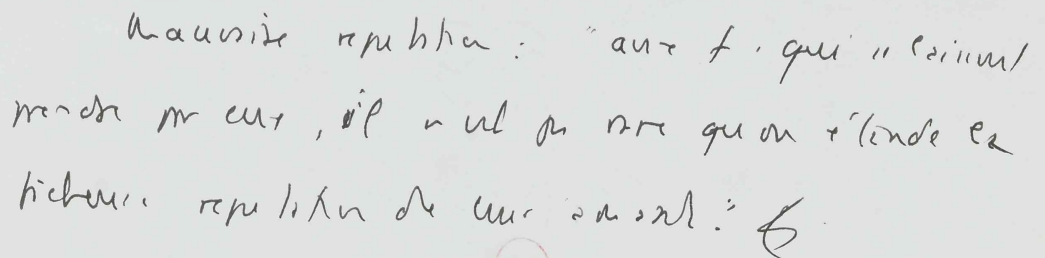 Mauvaise reputation : "aux f. qui s'laissent
prendre par eux, il n'est pas rare qu'on étende la
fâcheuse reputation de leurs amants." 6